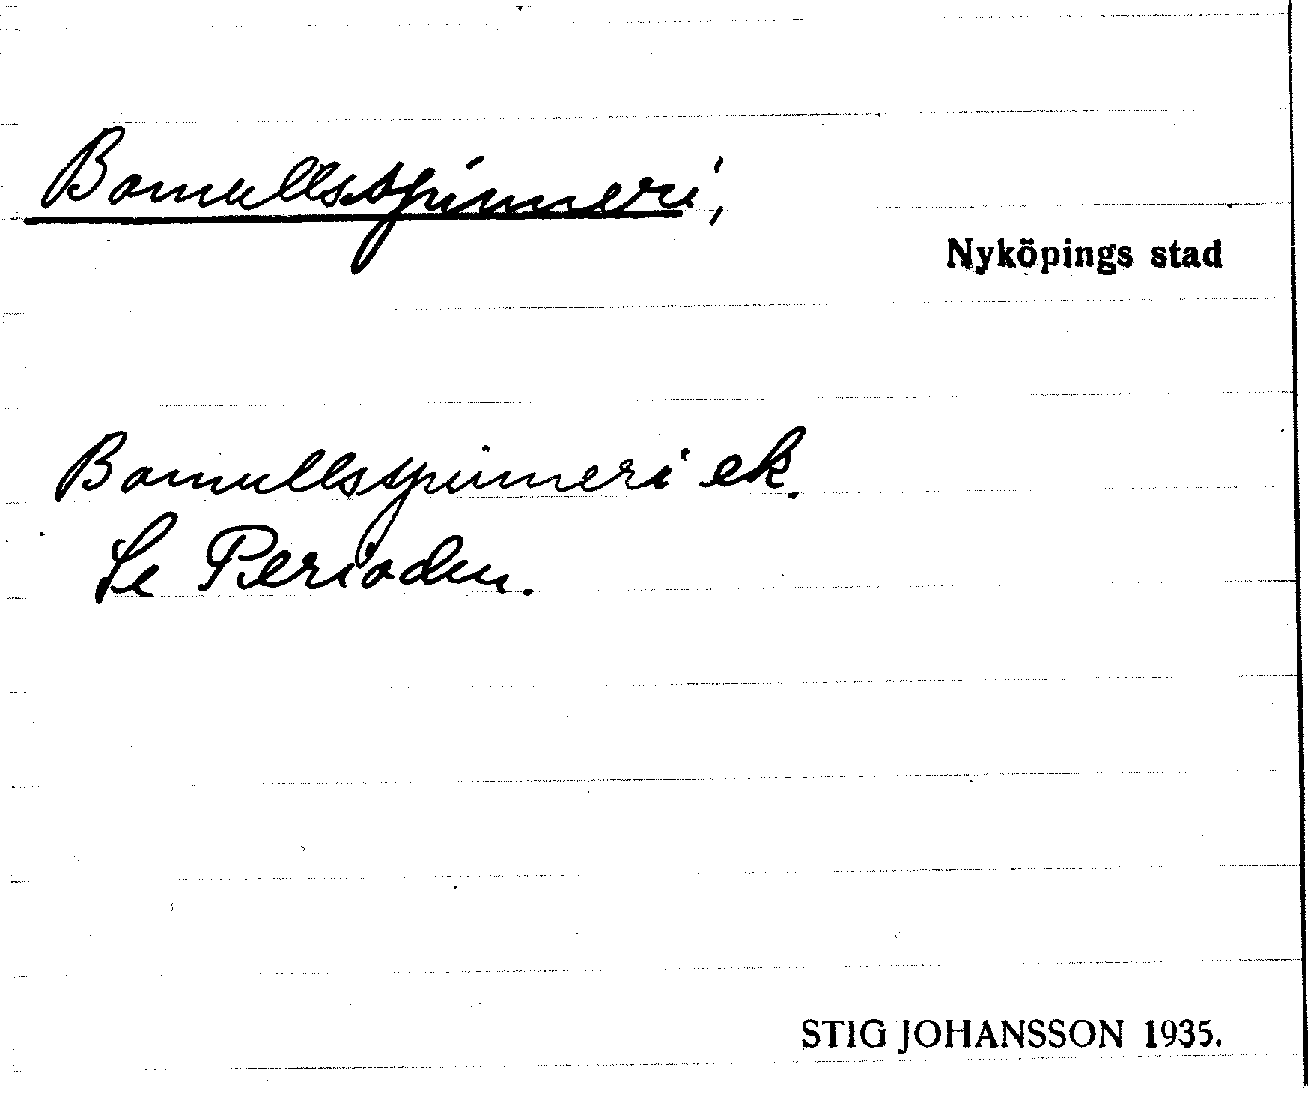 Bomullsspinneri,
Nyköpings stad
Bomullsspinneri ek.
Se Perioden.
STIG JOHANSSON 1935.